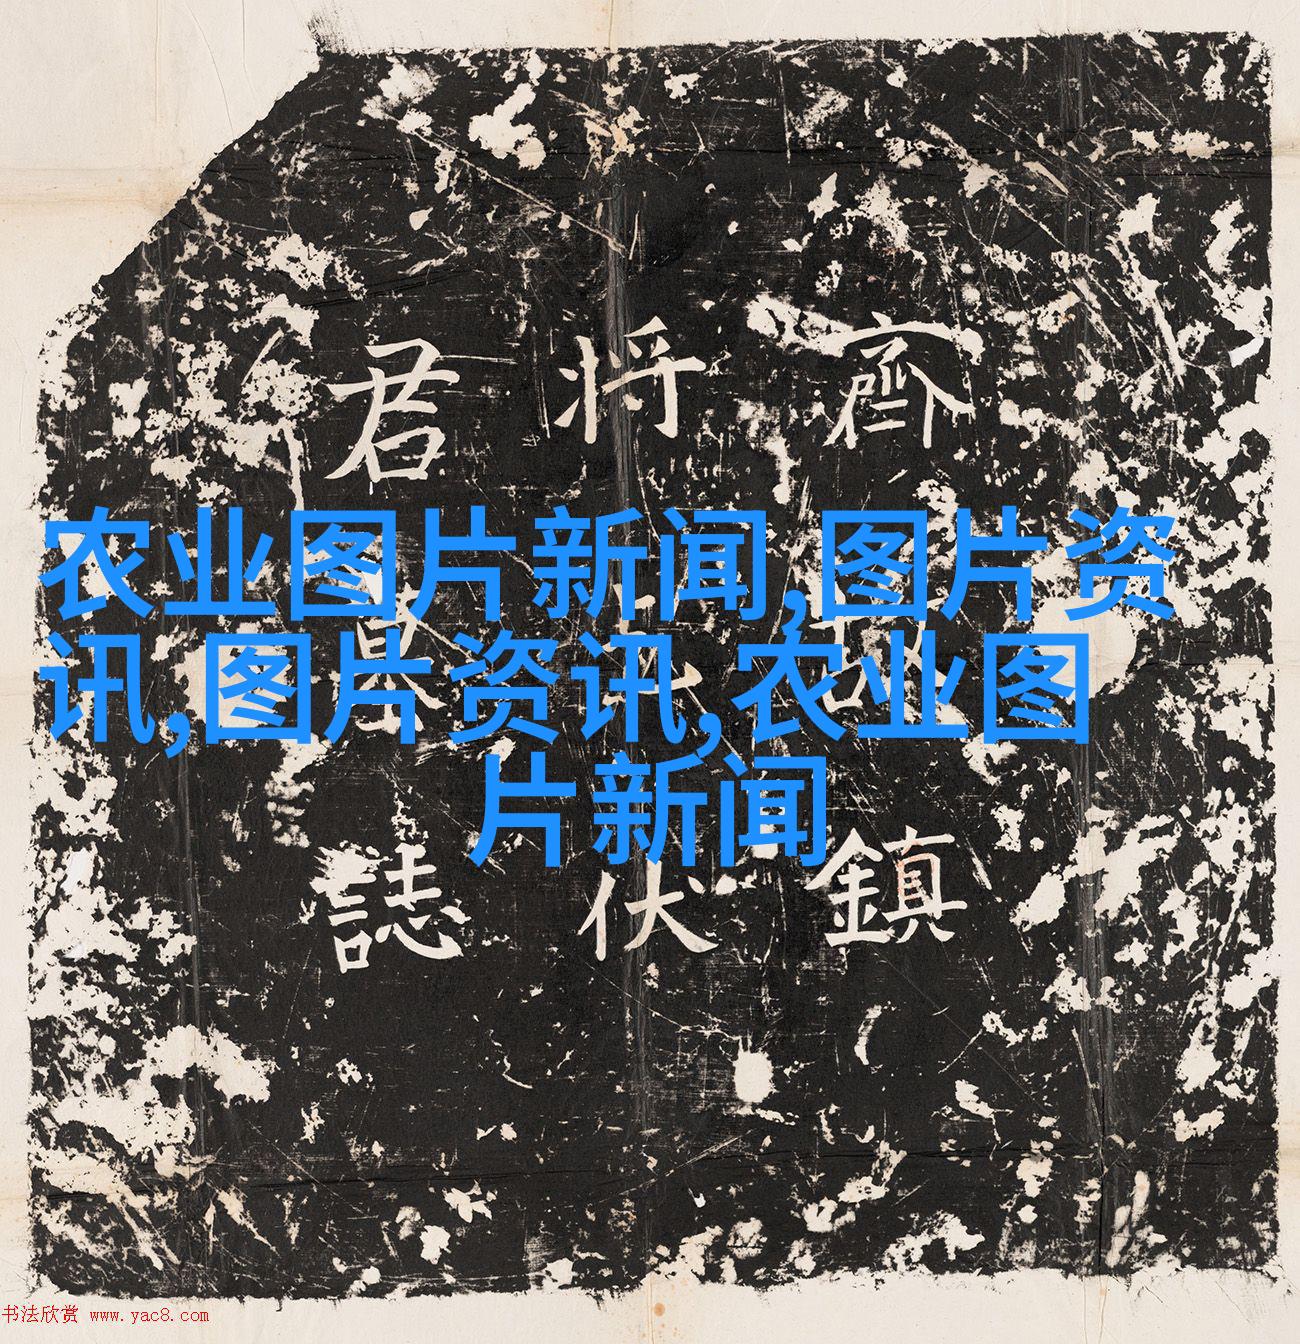 农业图片新闻,图片资
讯,图片资讯,农业图
片新闻
齊故鎮
将乞伏
君墓誌
书法欣赏 www.yac8.com